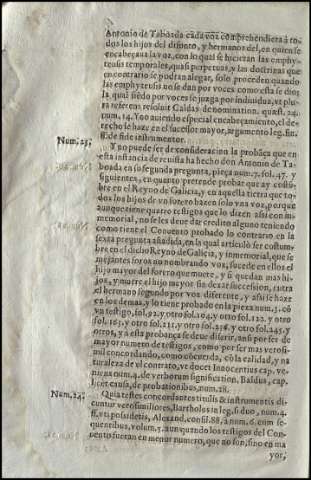 Antonio de Taboada cada voz comprehendiera à to
dos los hijos del difunto, y hermanos del, en quien se
encabeçaua la voz, con lo qual se hizieran las emphy-
teusis temporales, quasi perpetuas, y las doctrinas que
en contrario se podran alegar, solo proceden quando
las emphyteusis no se dan por vozes como esta se diò
la qual siẽdo por vozes se juzga por indiuidua, vt plu-
ra referens resoluit Caldas de nominatione. quæst. 24.
num. 14. Y no auiendo especial encabeçamiento, el de-
recho le haze en el sucessor mayor, argumento leg. fin.
ff. de fide instrumentor.
Num. 23.
Y no puede ser de consideracion la probãça que en
esta instancia de reuista ha hecho don Antonio de Ta-
boada en su segunda pregunta, pieça num. 7. fol. 47. y
siguientes, en quanto pretende probar que ay costũ-
bre en el Reyno de Galicia, y en aquella tierra que to-
dos los hijos de vn forero hazen solo vna voz, porque
aunque tiene quatro testigos que lo dizen assi con in-
memorial, no se les deue dar credito alguno teniendo
como tiene el Conuento probado lo contrario en la
sexta pregunta añadida, en la qual articulò ser costum-
bre en el dicho Reyno de Galicia, y inmemorial, que se
mejantes foros no nombrando voz, sucede en ellos el
hijo mayor del forero que muere, y si quedan mas hi-
jos, y muere el hijo mayor sin dexar sucession, entra
el hermano segundo por voz diferente, y assi se haze
en los demas, y lo tiene probado en la pieza num. 5. co
va testigo, fol. 92. y otro fol. 104. y otro fol. 122. y otro
fol. 163. y otro fol. 211. y otro fol. 236. y otro fol. 245. y
otros, y à esta probança se deue diferir, assi por ser de
mayor numero de testigos, como por ser mas verosi-
mil concordando, como cõcuerda, cõ la calidad, y na
turaleza de el contrato, vt docet Innocentius cap. ve-
niens num. 4. de verborum signification. Baldus, cap.
licet causã, de probationibus, num. 28.
Num. 24.
Quia testes concordantes titulis & instrumentis di-
cuntur verosimiliores, Bartholus in leg. si duo, num. 4.
ff. vti possidetis, Alexand. consil. 88. à num. 6. cum se-
quentibus, volum. 3. aunquando los testigos del Con-
uento fueran en menor numero, que no son, sino en ma
yor,